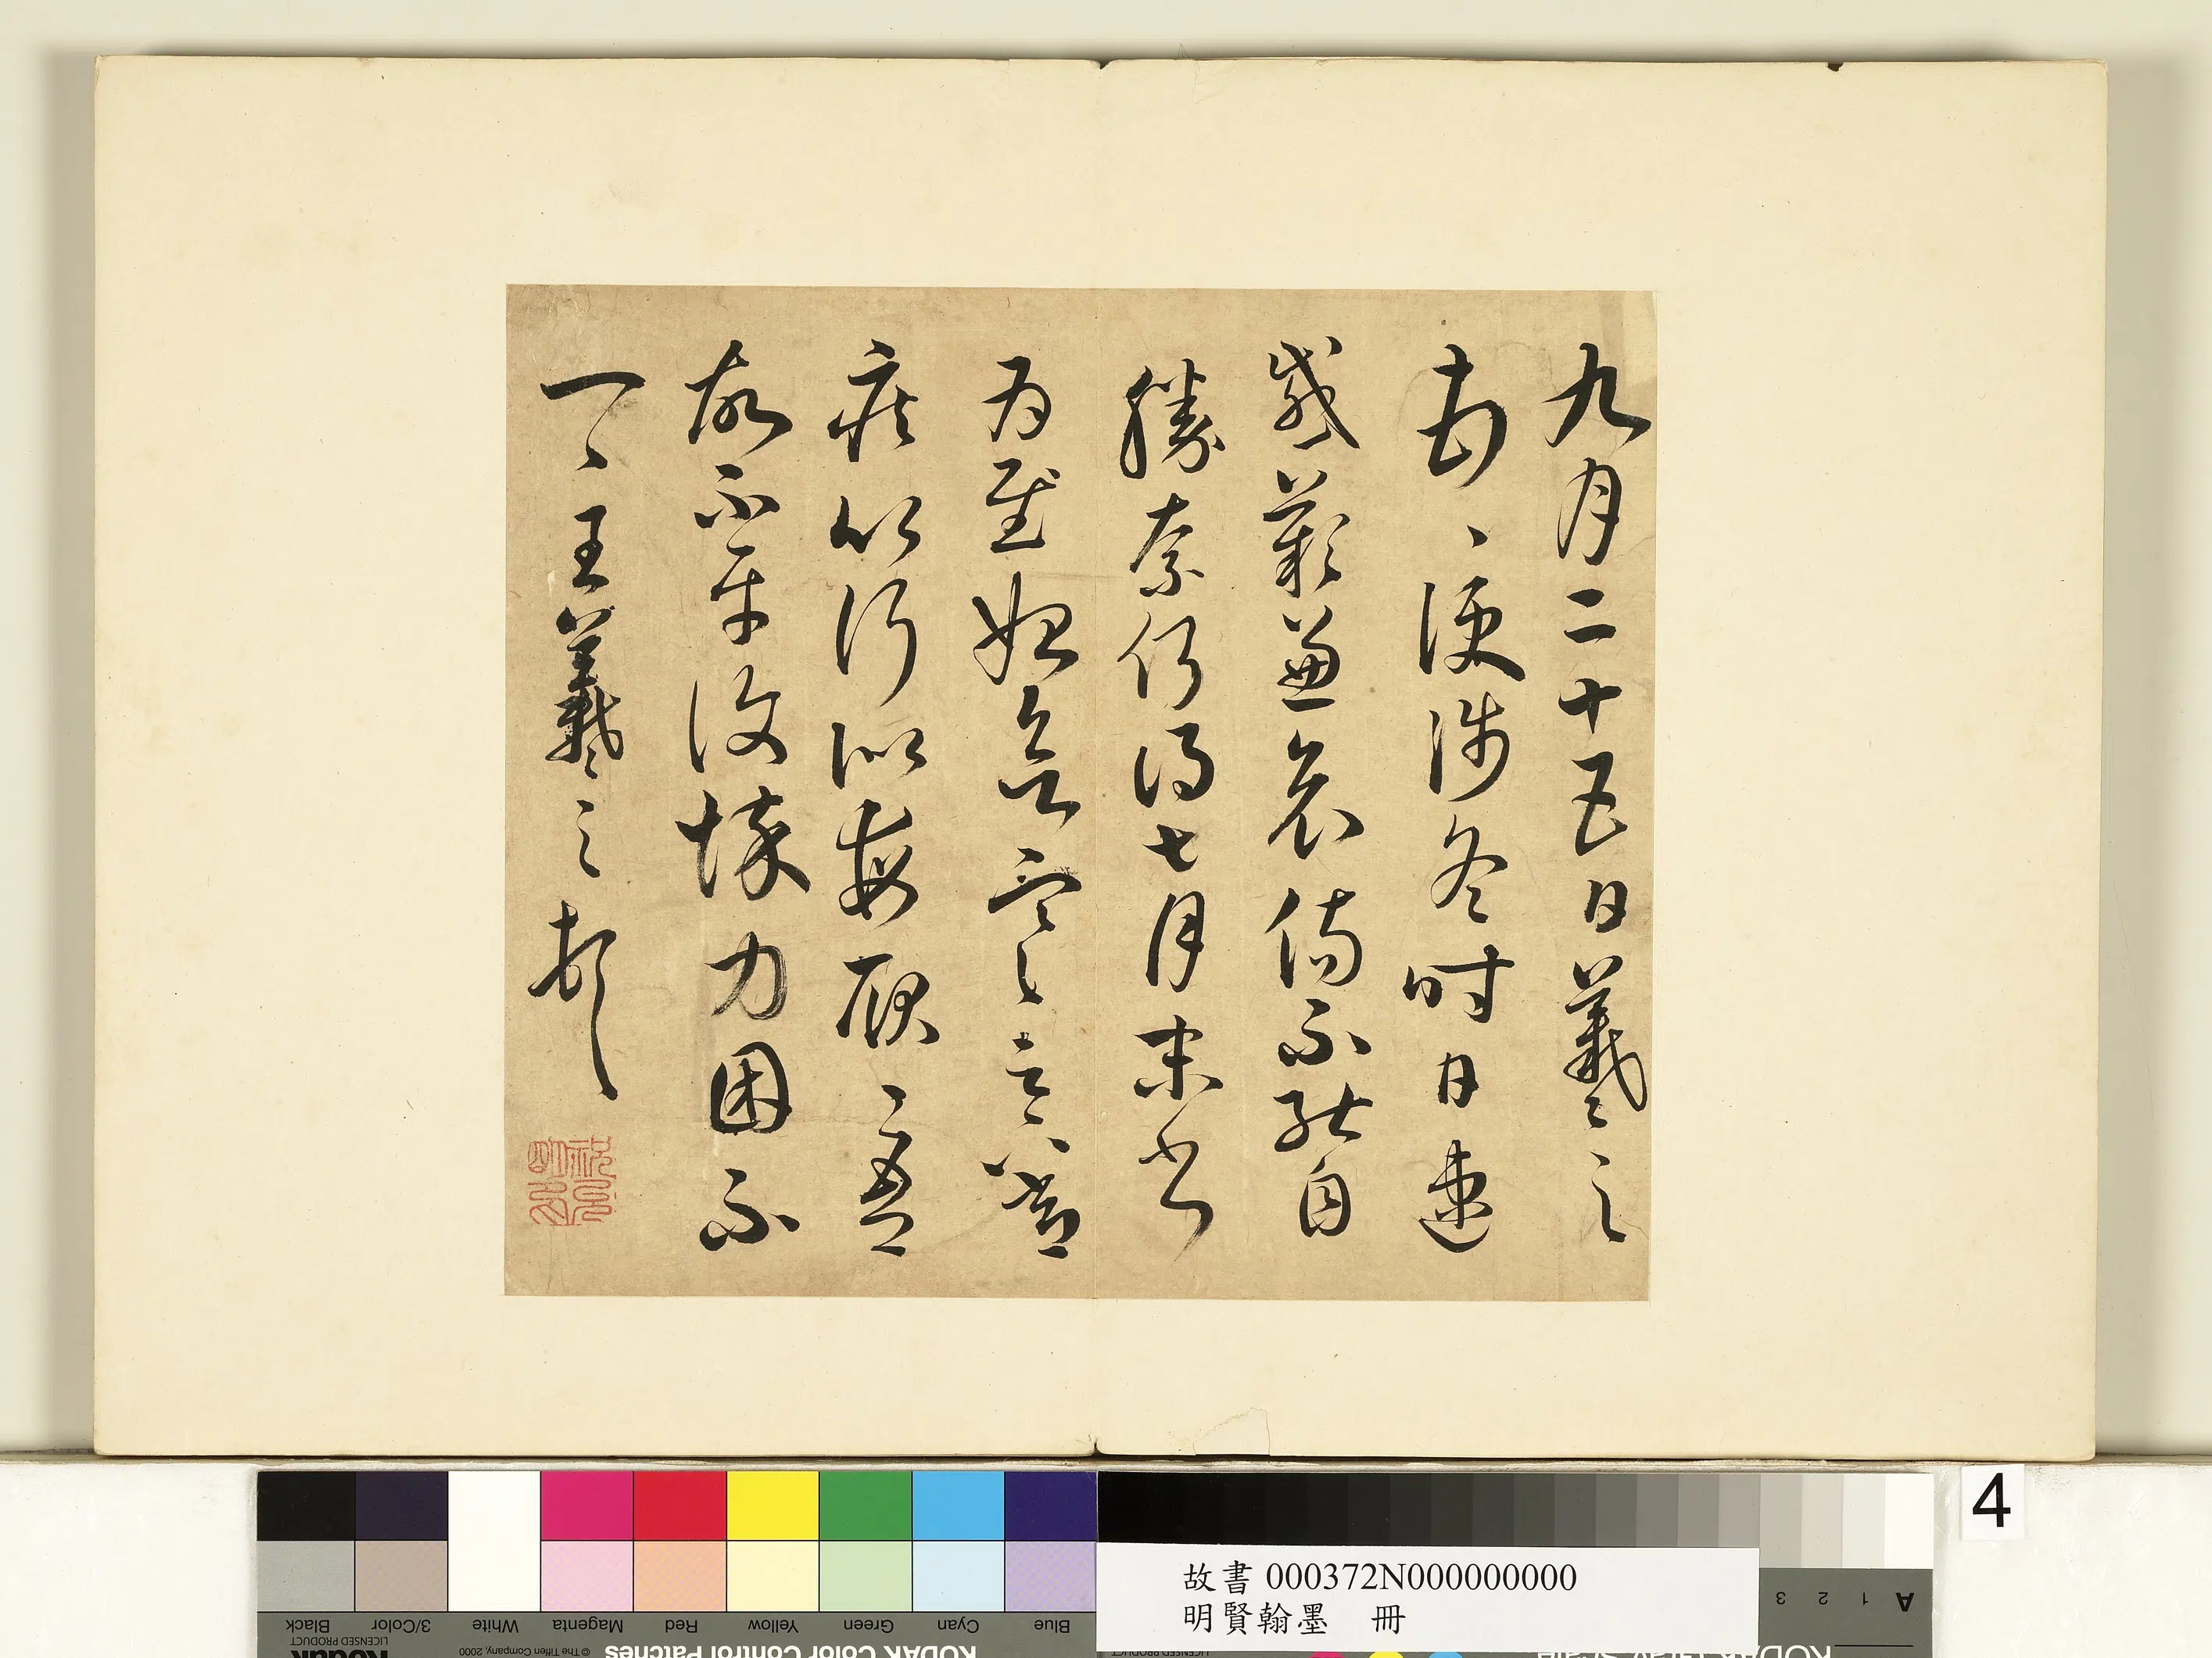 九月二十五日羲之
便涉冬時日速
感歎兼哀傷不能自
勝奈何得七月末書
為慰始寒
疾何似每耿〻吾
故不平復悴力困不
一〻王羲之頓
祝允明印
4
故書 000372N000000000
明賢翰墨 冊
Blue Cyan Green Yellow Red Magenta White 3/Color Black
KODAK Color Control Patches © The Tiffen Company, 2000 Kodak LICENSED PRODUCT
A 1 2 3